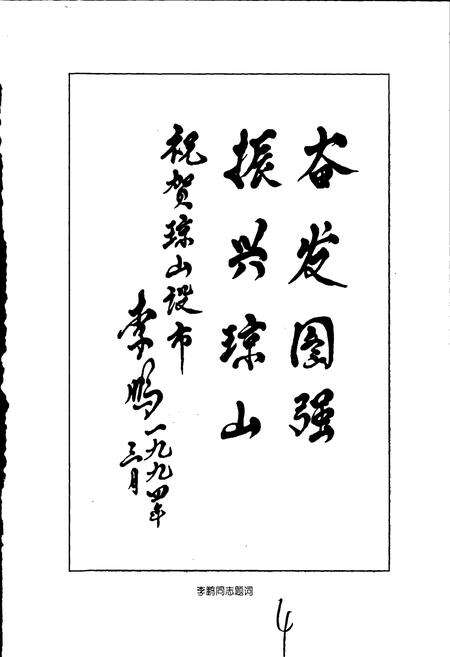 奋发图强
振兴琼山
祝贺琼山设市
李鹏
一九九四年
三月
李鹏同志题词
4